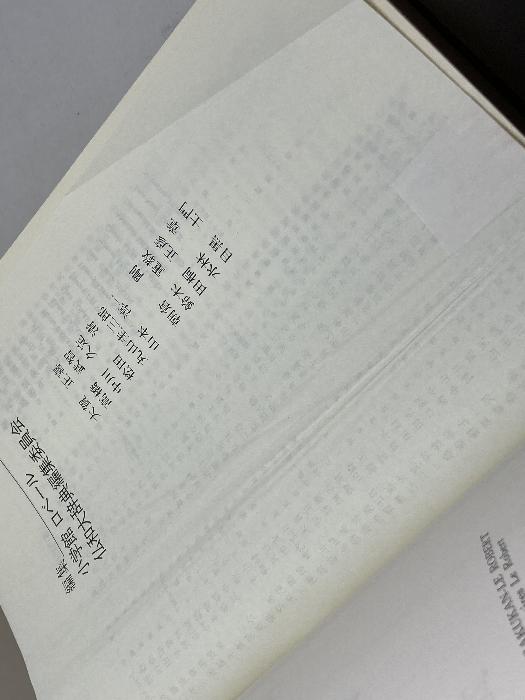 編集
小学館 ロベール
仏和大辞典編集委員会
大賀 正喜
高橋 武智
中川 久定
松田 清
丸山圭三郎
山本 淳一
朝倉 剛
鈴木
田桐 正彦
水林 章
目黒 士門
AKUKAN-LE ROBERT
Le Robert